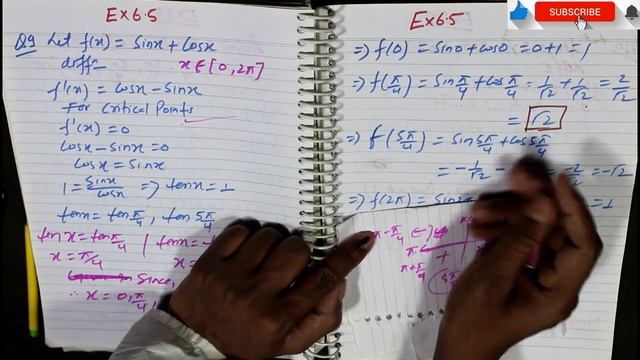 Ex 6.5
Q9 Let f(x) = Sinx + Cosx
diffn x ∈ [0, 2π]
f'(x) = Cosx - Sinx
For Critical Points
f'(x) = 0
Cosx - Sinx = 0
Cosx = Sinx
1 = Sinx/Cosx => tanx = 1
tanx = tan π/4, tan 5π/4
tanx = tan π/4 | tanx =
x = π/4 x =
Since,
∴ x = 0, π/4,
Ex 6.5
SUBSCRIBE
=> f(0) = Sin0 + Cos0 = 0+1 = 1
=> f(π/4) = Sin π/4 + Cos π/4 = 1/√2 + 1/√2 = 2/√2
= √2
=> f(5π/4) = Sin 5π/4 + Cos 5π/4
= -1/√2 - = -2/√2 = -√2
=> f(2π) = Sin2π = 1